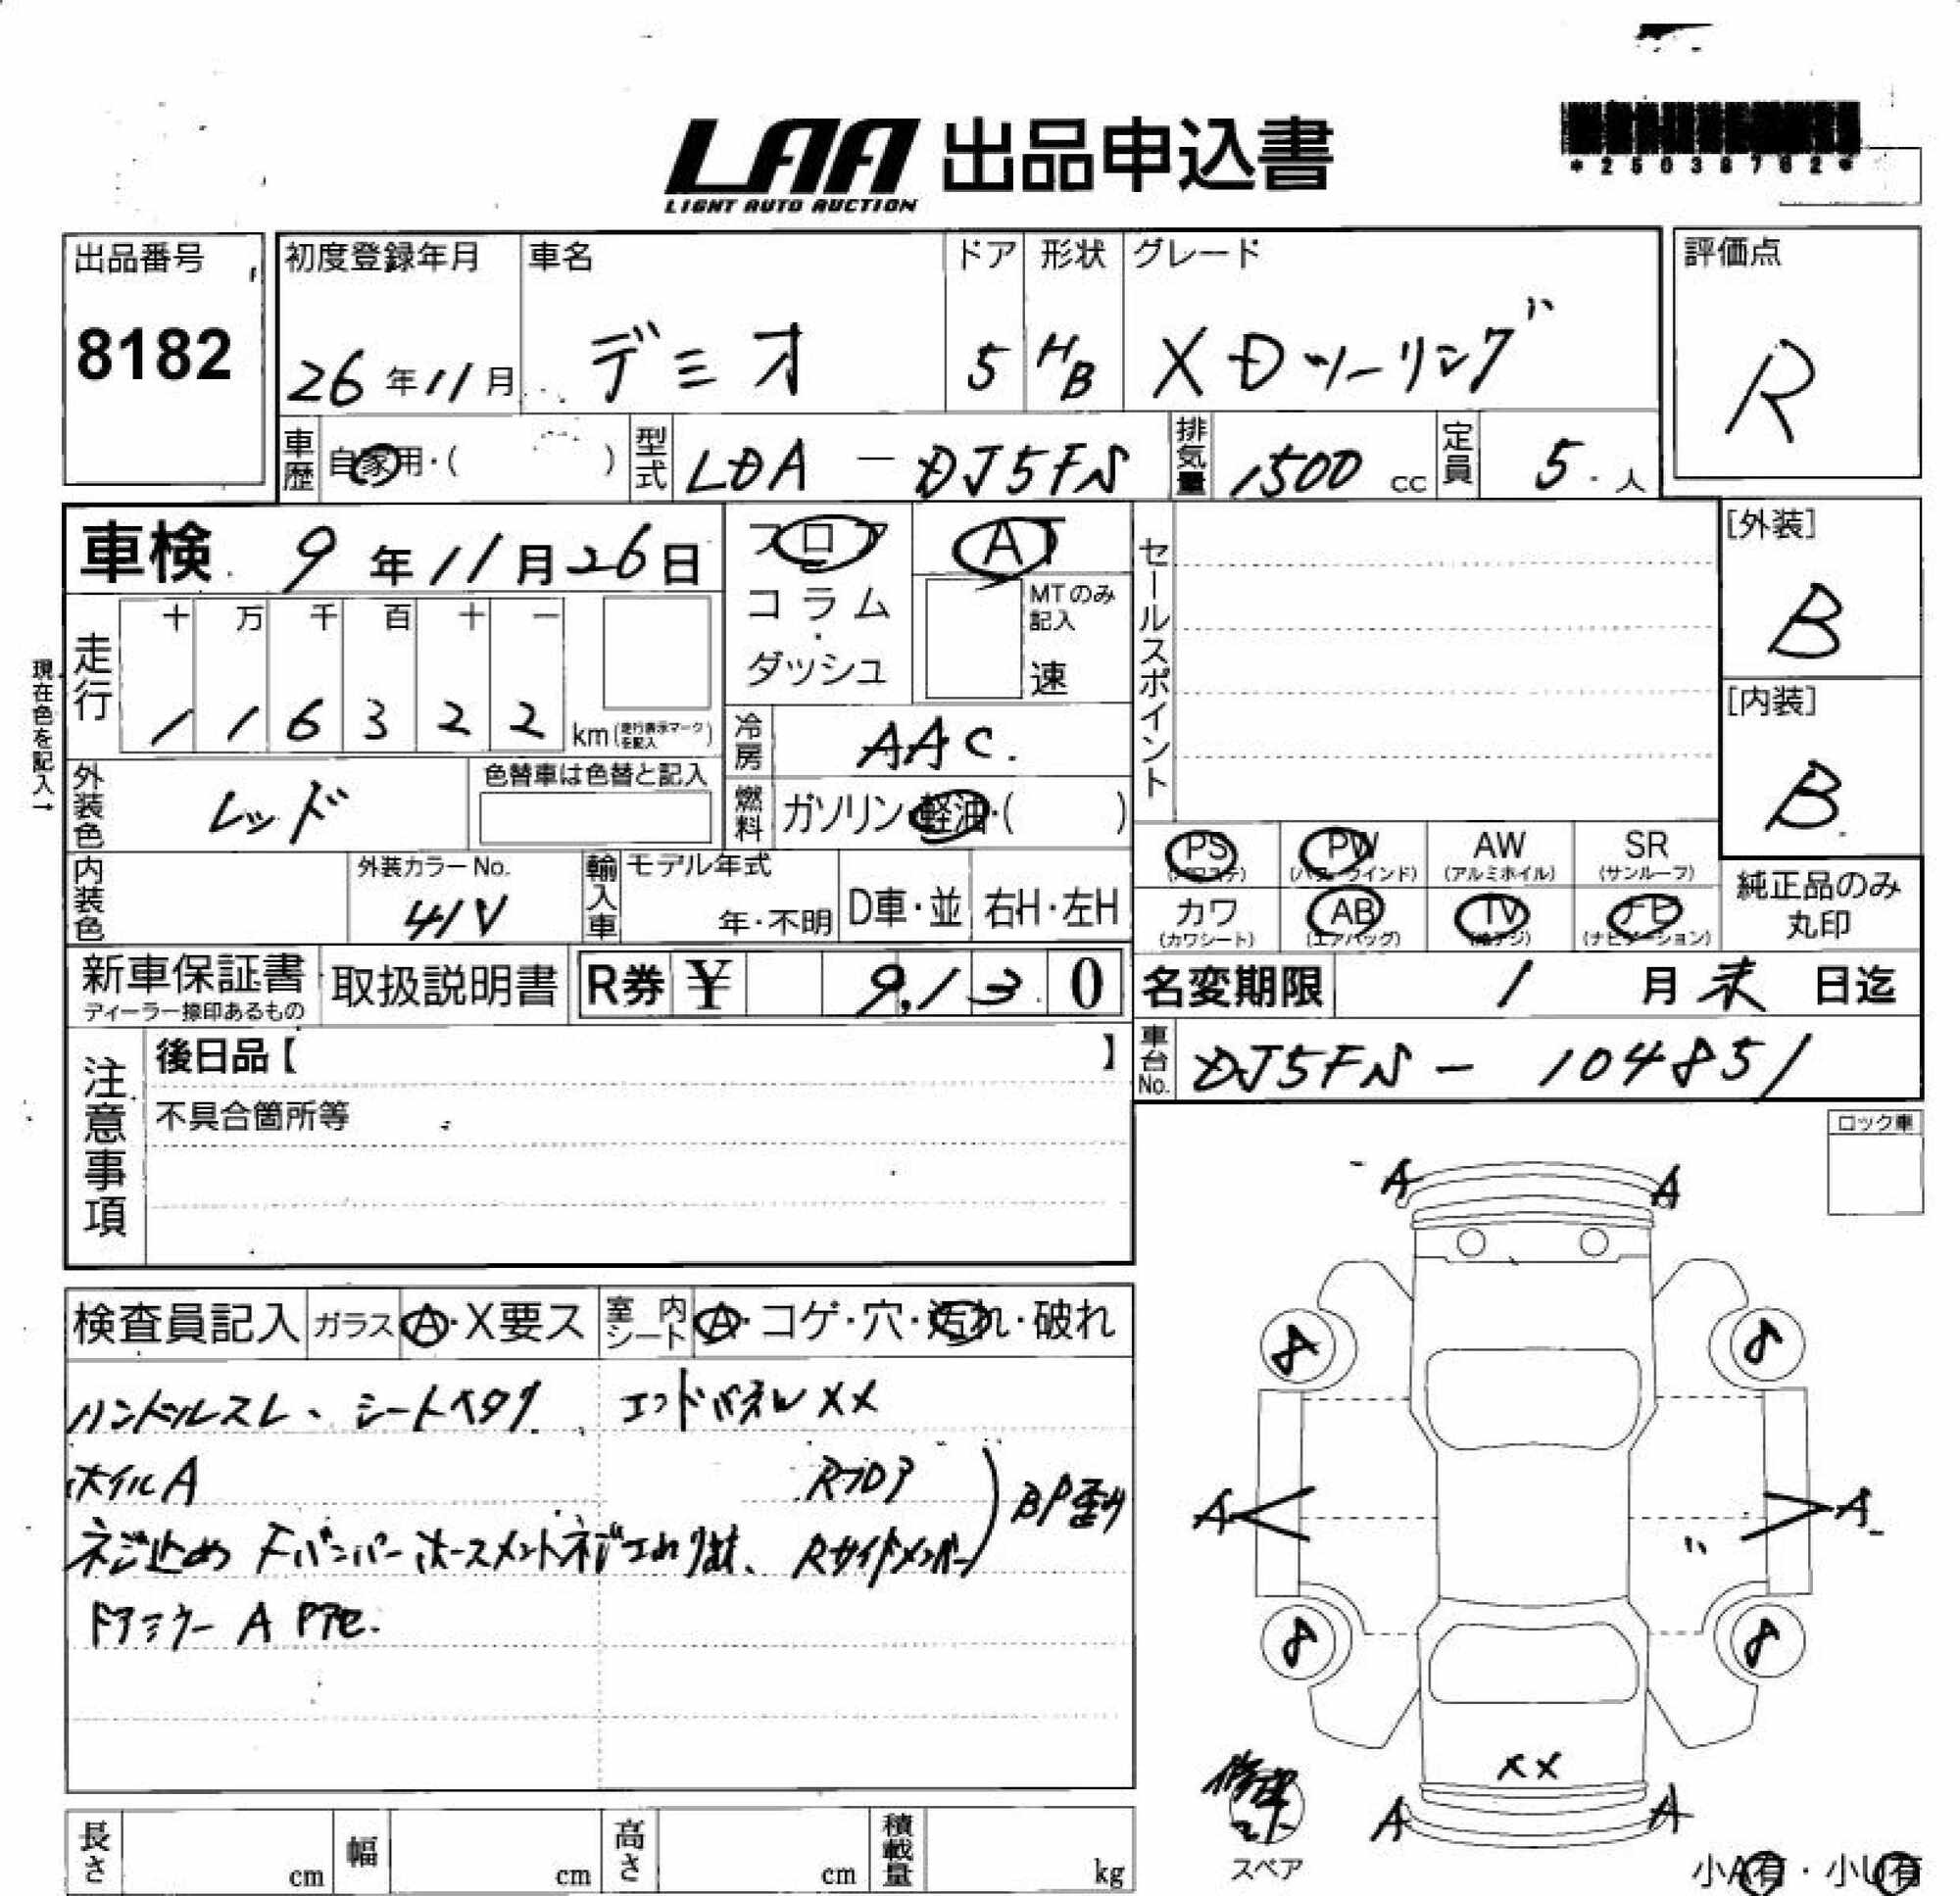 LAA 出品申込書
LIGHT AUTO AUCTION
*25038762*
出品番号
8182
初度登録年月
26年11月
車名
デミオ
ドア
5
形状
HB
グレード
XDツーリング
評価点
R
車歴 自家用・( )
型式 LDA-DJ5FS
排気量 1500 cc
定員 5人
車検 9年11月26日
フロア
コラム・
ダッシュ
AT
MTのみ
記入
速
セールスポイント
[外装]
B
[内装]
B
走行 十 万 千 百 十 一
1 1 6 3 2 2 km(走行表示マークを記入)
現在色を記入→
冷房 AAC
外装色 レッド
色替車は色替と記入
燃料 ガソリン・軽油・( )
PS (パワステ) PW (パワーウインド) AW (アルミホイル) SR (サンルーフ)
カワ (カワシート) AB (エアバッグ) TV (地デジ) ナビ (ナビゲーション)
純正品のみ
丸印
内装色
外装カラーNo.
41V
輸入車 モデル年式
年・不明 D車・並 右H・左H
新車保証書
ディーラー捺印あるもの
取扱説明書
R券 ¥ 9,130
名変期限 1月末日迄
車台No. DJ5FS-104851
注意事項
後日品【 】
不具合箇所等
ロック車
検査員記入 ガラス A・X要ス 室内シート A・コゲ・穴・汚れ・破れ
ハンドルスレ、シートヘタリ エンドパネルXX
ホイルA Rフロア
BP歪み
ネジ止め Fバンパー ホースメントネジ Rサイドメンバー
ドアミラーA
A A
8 8
A A
8 8
XX
A A
スペア
小A有・小U有
長さ cm 幅 cm 高さ cm 積載量 kg